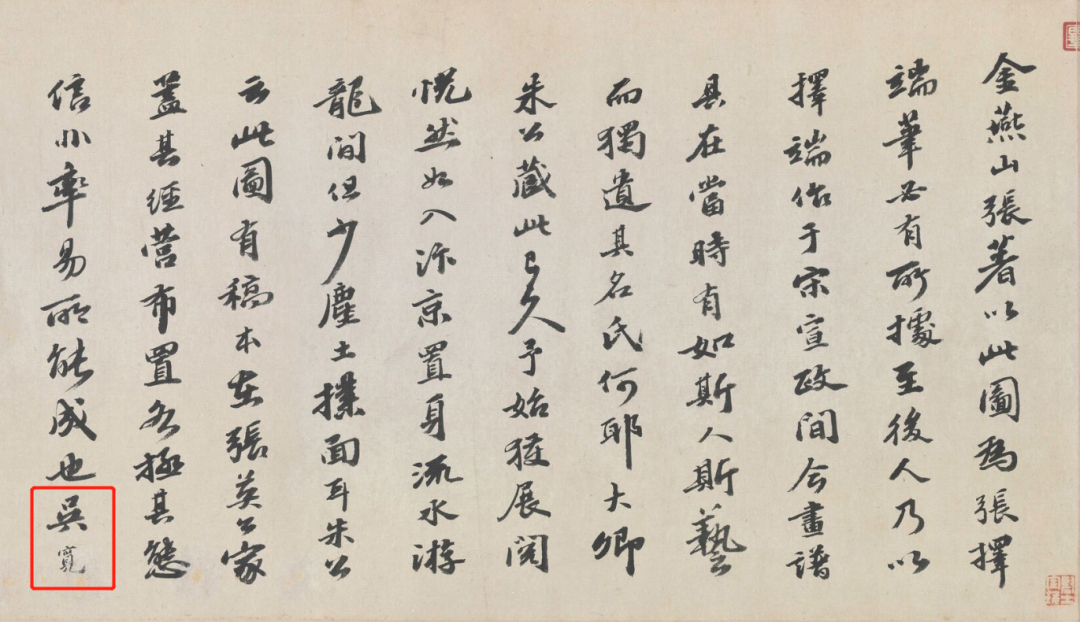 金燕山張著以此圖為張擇
端筆必有所據至後人乃以
擇端作于宋宣政間今畫譜
具在當時有如斯人斯藝
而獨遺其名氏何耶大卿
朱公藏此已久予始獲展閱
恍然如入汴京置身流水游
龍間但少塵土撲面耳朱公
云此圖有稿本在張英公家
蓋其經營布置各極其態
信非率易所能成也吳
寬